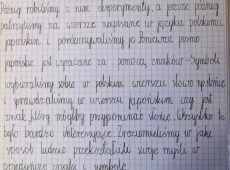 Później robiliśmy z nim eksperymenty, a jeszcze później
patrzyliśmy na wiersze napisane w języku polskim i
japońskim i porównywaliśmy je. Ponieważ pismo
japońskie jest wyrażane za pomocą znaków-symboli
wybieraliśmy sobie w polskim wierszu słowo np. słońce
i sprawdzaliśmy w wierszu japońskim czy jest
znak, który mógłby przypominać słońce. Wszystko to
było bardzo interesujące. Zrozumieliśmy w jaki
sposób ludzie przekształcali swoje myśli w
pojedyncze znaki i symbole.